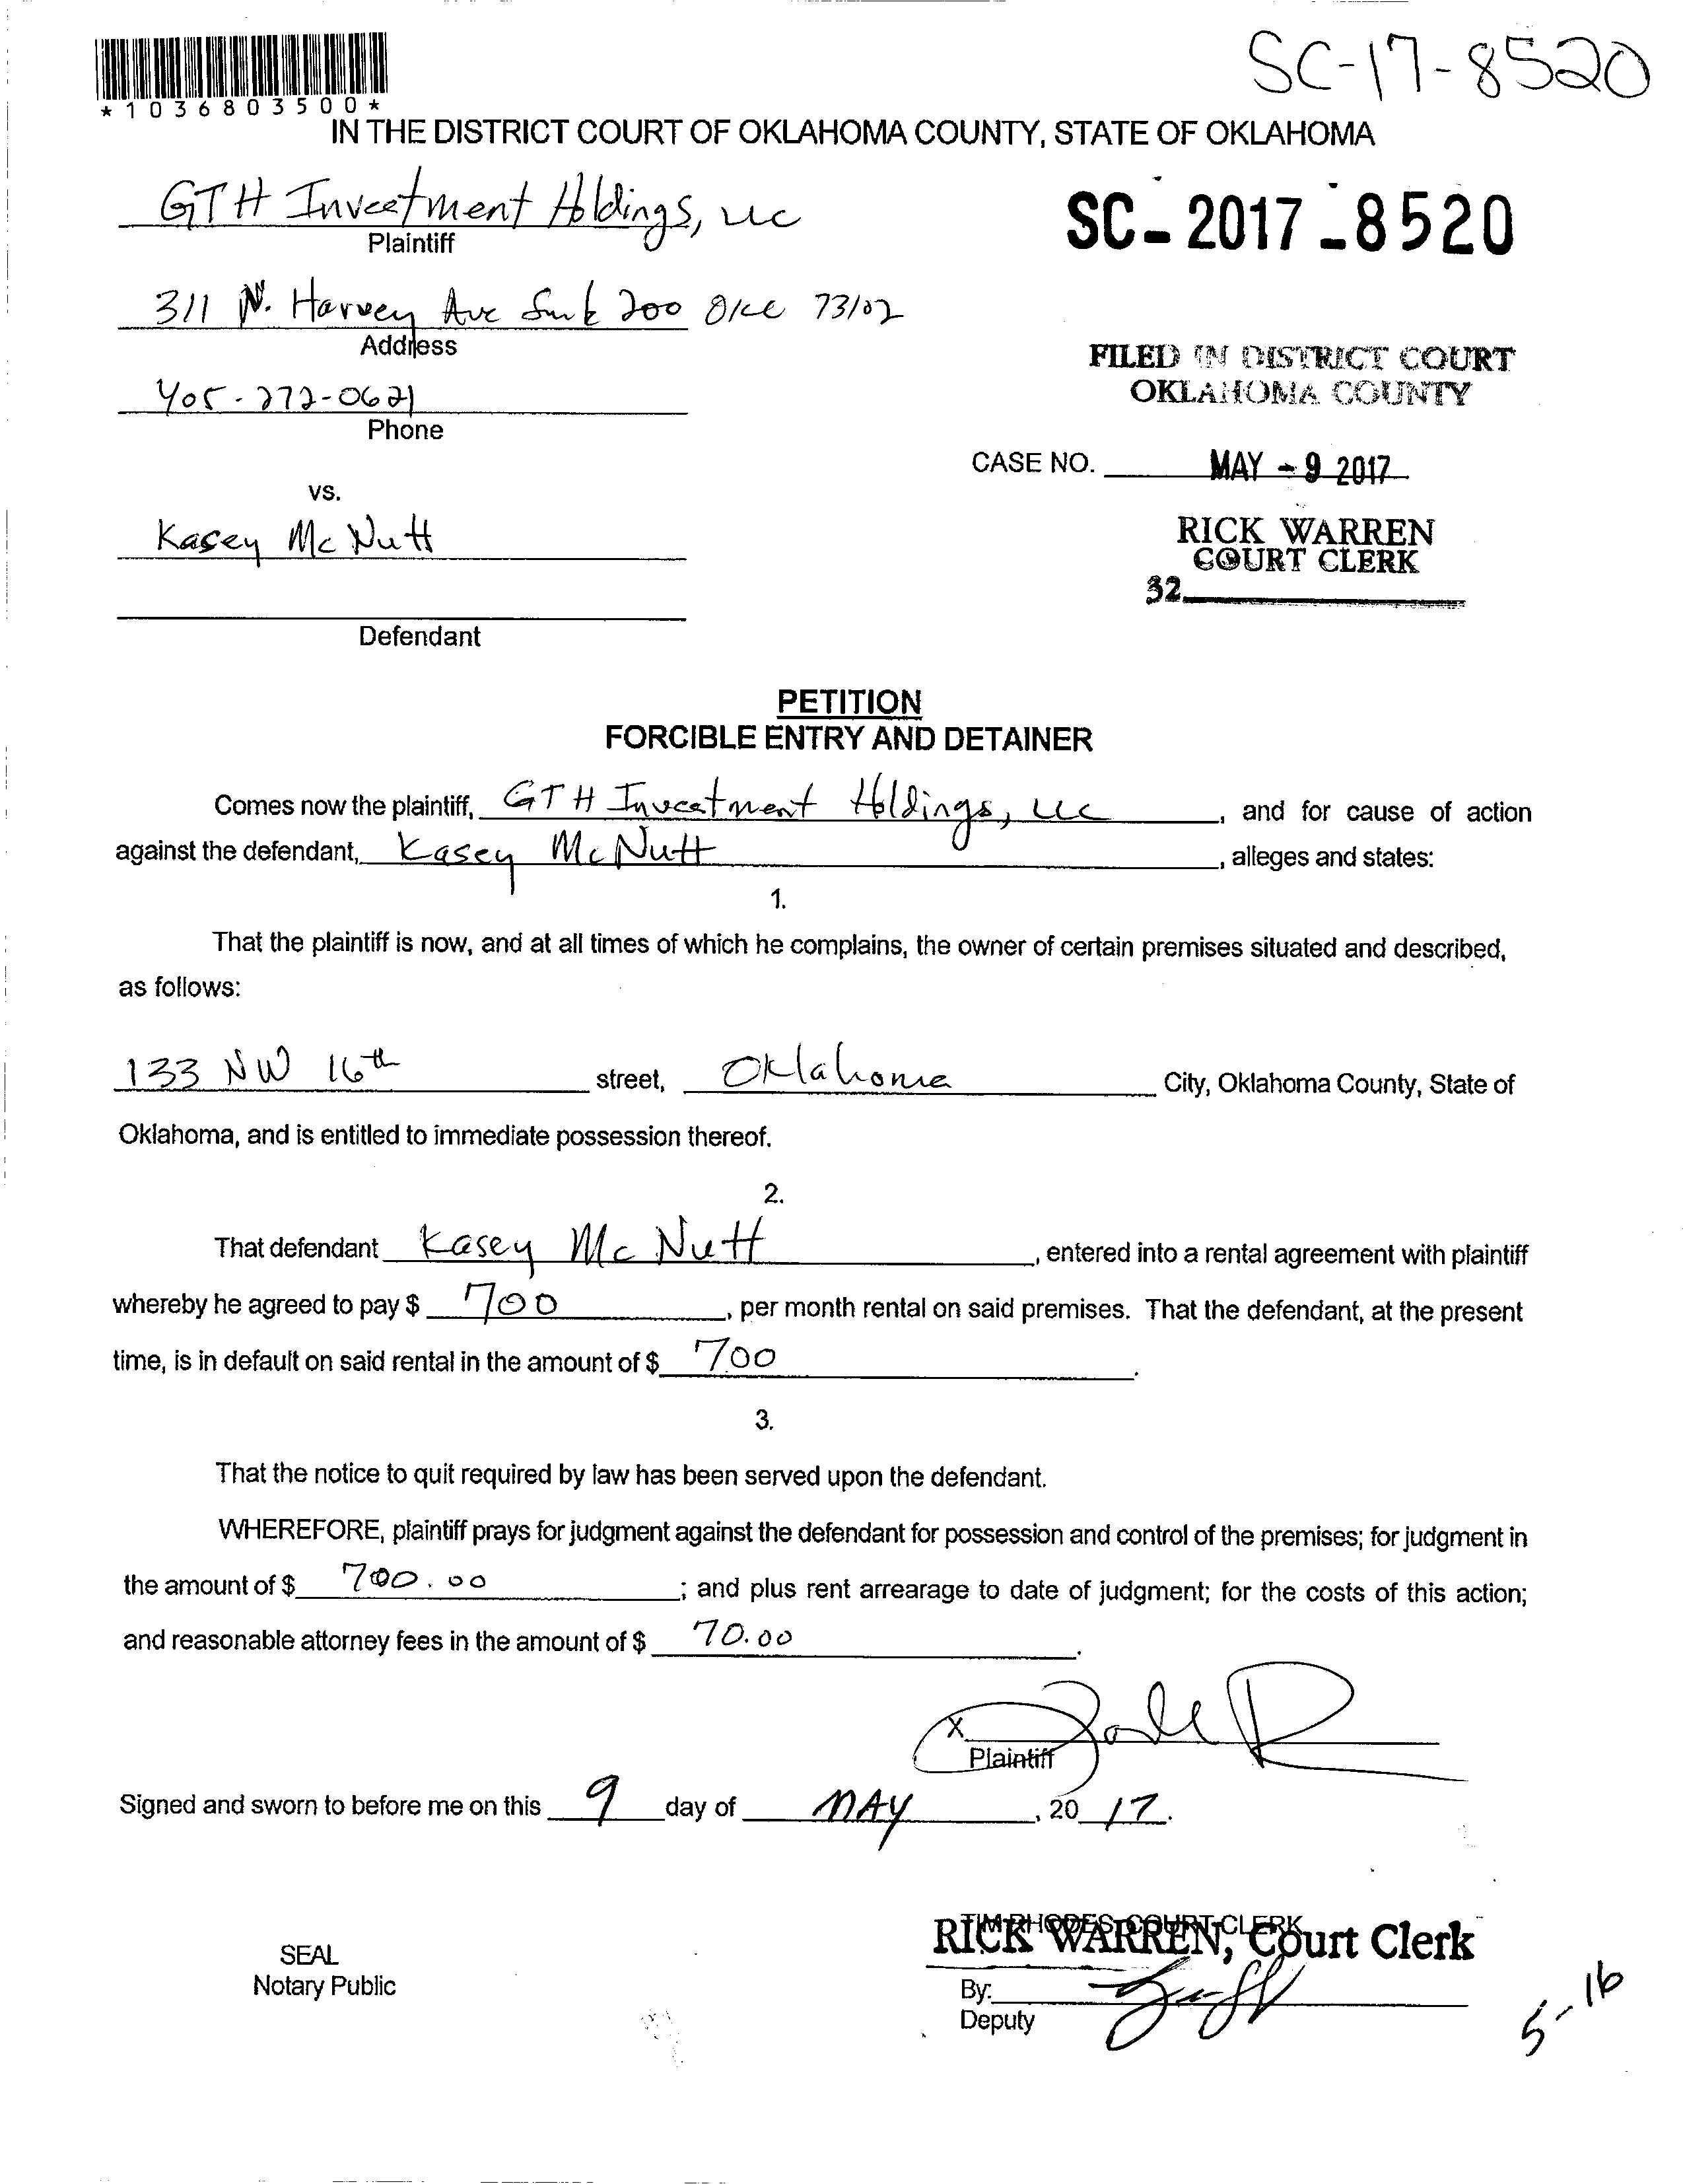 SC-17-8520
*1036803500*
IN THE DISTRICT COURT OF OKLAHOMA COUNTY, STATE OF OKLAHOMA
GTH Investment Holdings, LLC
Plaintiff
SC-2017-8520
311 N. Harvey Ave Suite 200 OKC 73102
Address
FILED IN DISTRICT COURT
OKLAHOMA COUNTY
405-272-0621
Phone
CASE NO. MAY - 9 2017
vs.
Kasey McNutt
RICK WARREN
COURT CLERK
32
Defendant
PETITION
FORCIBLE ENTRY AND DETAINER
Comes now the plaintiff, GTH Investment Holdings, LLC, and for cause of action
against the defendant, Kasey McNutt, alleges and states:
1.
That the plaintiff is now, and at all times of which he complains, the owner of certain premises situated and described,
as follows:
133 NW 16th street, Oklahoma City, Oklahoma County, State of
Oklahoma, and is entitled to immediate possession thereof.
2.
That defendant Kasey McNutt, entered into a rental agreement with plaintiff
whereby he agreed to pay $ 700, per month rental on said premises. That the defendant, at the present
time, is in default on said rental in the amount of $ 700.
3.
That the notice to quit required by law has been served upon the defendant.
WHEREFORE, plaintiff prays for judgment against the defendant for possession and control of the premises; for judgment in
the amount of $ 700.00; and plus rent arrearage to date of judgment; for the costs of this action;
and reasonable attorney fees in the amount of $ 70.00.
X
Plaintiff
Signed and sworn to before me on this 9 day of MAY, 20 17.
TIM RHODES COURT CLERK
RICK WARREN, Court Clerk
SEAL
Notary Public
By:
Deputy
5-16